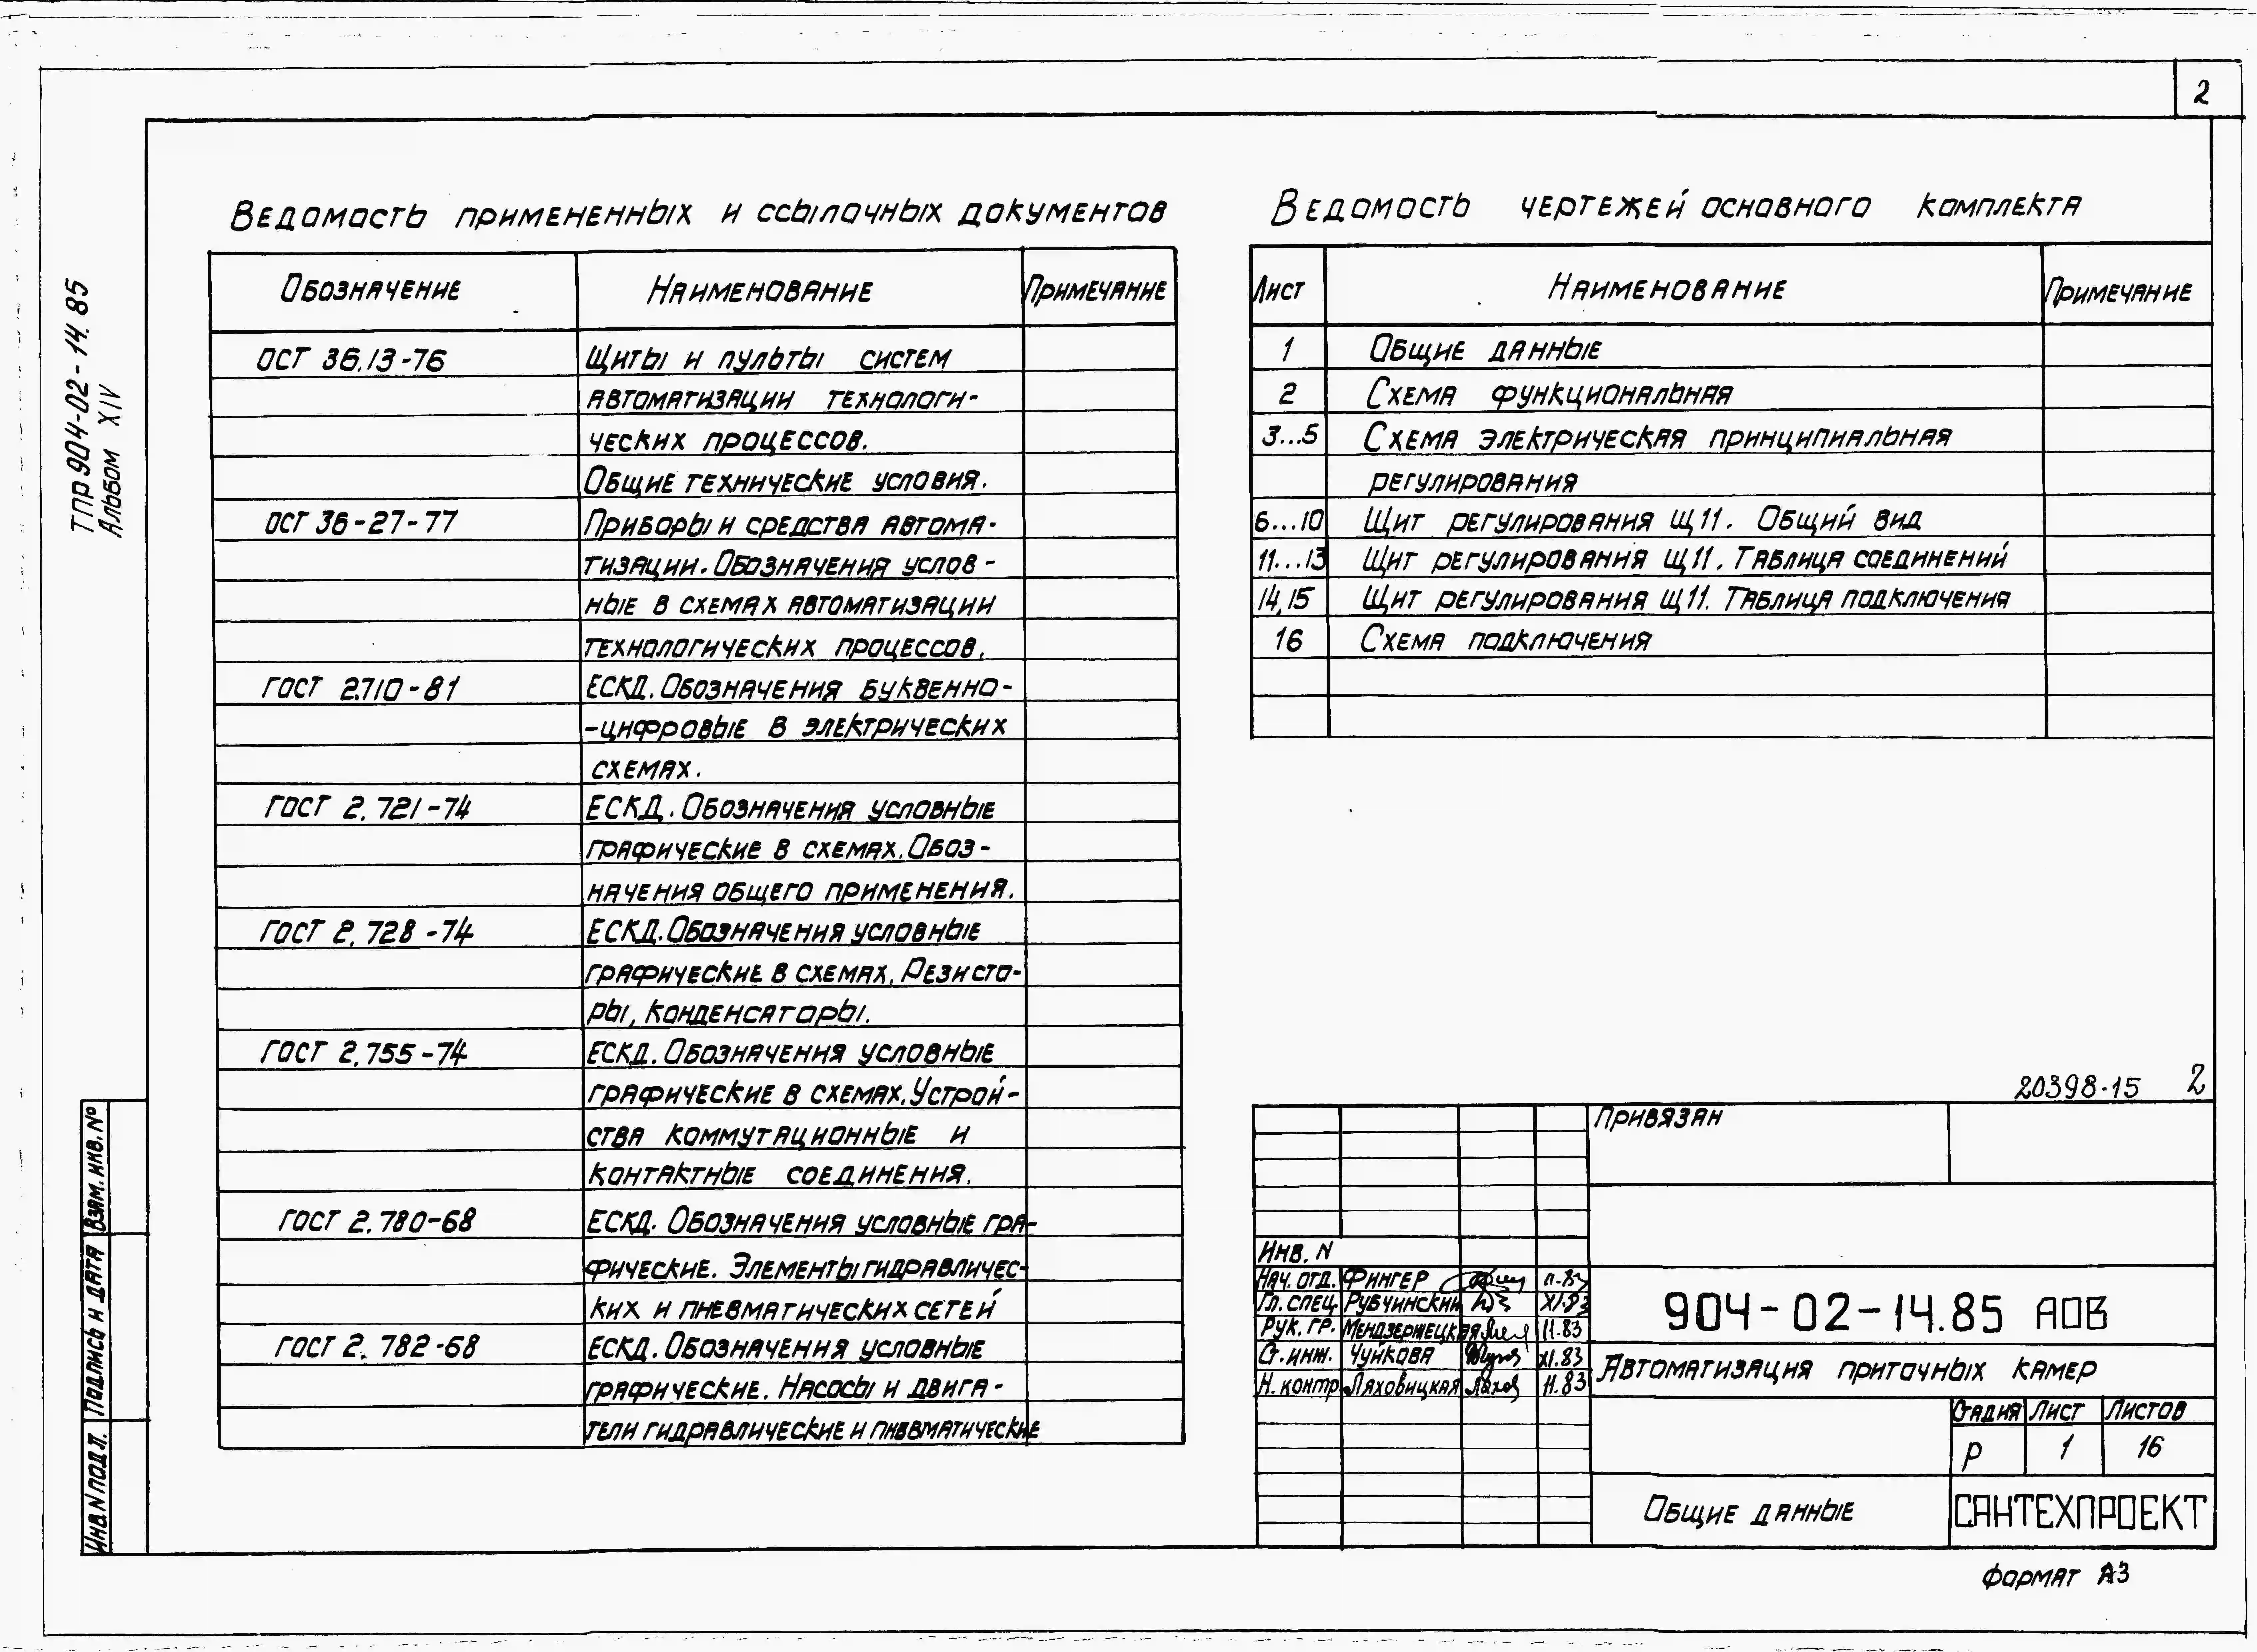 2
ТПР 904-02-14.85
Альбом XIV
Ведомость примененных и ссылочных документов
Обозначение Наименование Примечание
ОСТ 36.13-76 Щиты и пульты систем
автоматизации технологи-
ческих процессов.
Общие технические условия.
ОСТ 36-27-77 Приборы и средства автома-
тизации. Обозначения услов-
ные в схемах автоматизации
технологических процессов.
ГОСТ 2.710-81 ЕСКД. Обозначения буквенно-
-цифровые в электрических
схемах.
ГОСТ 2.721-74 ЕСКД. Обозначения условные
графические в схемах. Обоз-
начения общего применения.
ГОСТ 2.728-74 ЕСКД. Обозначения условные
графические в схемах. Резисто-
ры, конденсаторы.
ГОСТ 2.755-74 ЕСКД. Обозначения условные
графические в схемах. Устрой-
ства коммутационные и
контактные соединения.
ГОСТ 2.780-68 ЕСКД. Обозначения условные гра-
фические. Элементы гидравличес-
ких и пневматических сетей
ГОСТ 2.782-68 ЕСКД. Обозначения условные
графические. Насосы и двига-
тели гидравлические и пневматические
Ведомость чертежей основного комплекта
Лист Наименование Примечание
1 Общие данные
2 Схема функциональная
3...5 Схема электрическая принципиальная
регулирования
6...10 Щит регулирования Щ11. Общий вид
11...13 Щит регулирования Щ11. Таблица соединений
14,15 Щит регулирования Щ11. Таблица подключения
16 Схема подключения
20398-15 2
Привязан
Инв. N
Нач. отд. Фингер 11.83
Гл. спец. Рубчинский XI.83
Рук. гр. Мендзержецкая 11.83
Ст. инж. Чуйкова XI.83
Н. контр. Ляховицкая 11.83
904-02-14.85 АОВ
Автоматизация приточных камер
Стадия Лист Листов
Р 1 16
Общие данные
САНТЕХПРОЕКТ
Формат А3
Взам. инв. №
Подпись и дата
Инв. N подл.